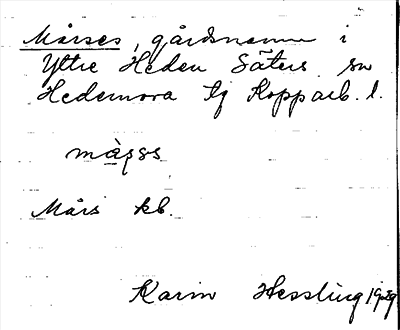 Mårses, gårdsnamn i
Yttre Heden Säters sn
Hedemora tg Kopparb. l.
Mårs kb.
Karin Hessling 1939